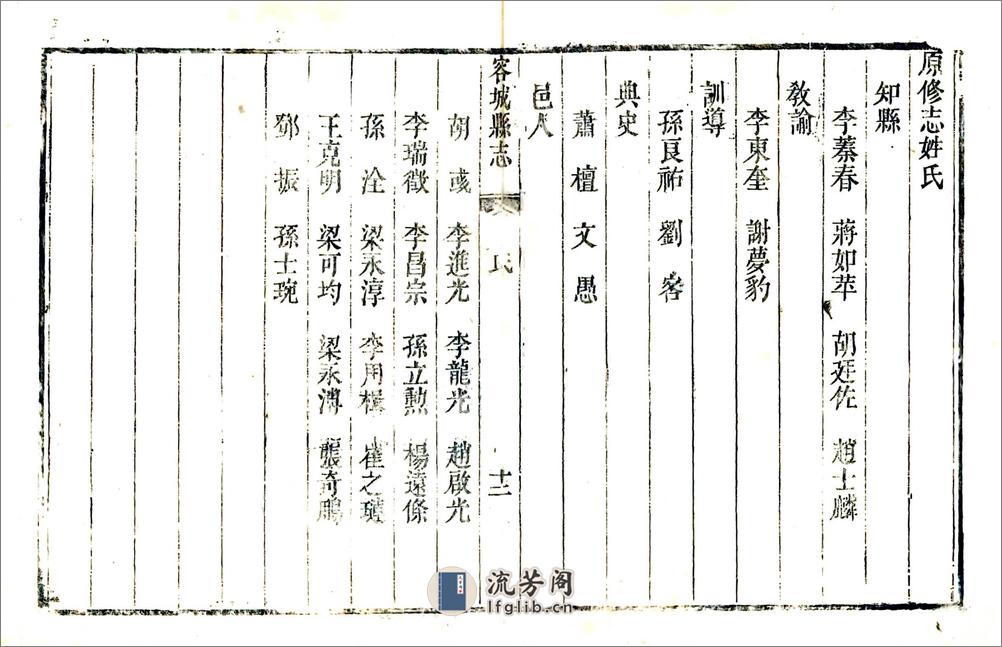 原修志姓氏
知縣
李蓁春 蔣如苹 胡廷佐 趙士麟
教諭
李東奎 謝夢豹
訓導
孫良祐 劉
典史
蕭檀 文愚
邑人
容城縣志 氏 十二
胡彧 李進光 李龍光 趙啟光
李瑞徵 李昌宗 孫立勲 楊遠條
孫洤 梁永淳 李用楫 崔之
王克明 梁可均 梁永溥 龔奇鵬
鄧振 孫士琬
流芳阁
lfglib.cn